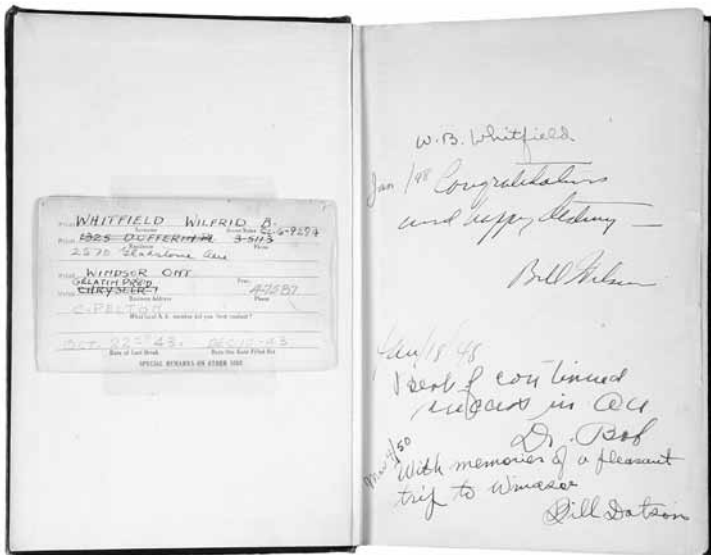 Print WHITFIELD WILFRID B.
Surname Given Names
Print 1325 DUFFERIN Pl 3-5113
Residence Phone
2570 Gladstone Ave
Print WINDSOR ONT
GELATIN PROD
Print CHRYSLER'S 4-7587
Business Address Phone
C. PELTON
What local A.A. member did you first contact?
OCT. 22nd 43. DEC 10-43
Date of Last Drink Date this Card Filled Out
SPECIAL REMARKS ON OTHER SIDE
W. B. Whitfield
Jan /48 Congratulations
and happy destiny —
Bill Wilson
Jan/18/48
Best of continued
success in AA
Dr. Bob
Mar 4/50
With memories of a pleasant
trip to Windsor
Bill Dotson